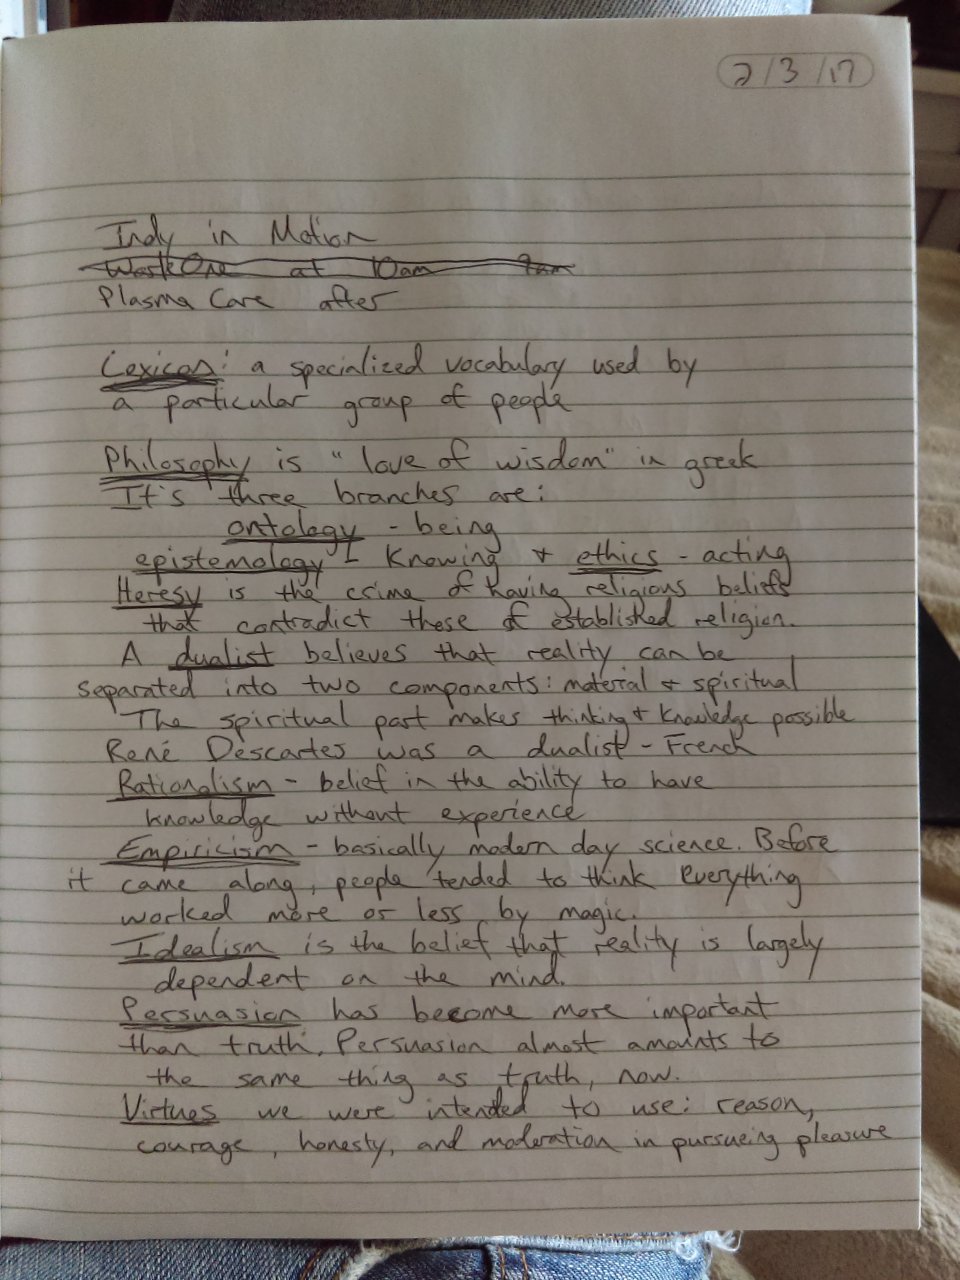 2/3/17
Indy in Motion
WorkOne at 10am 9am
Plasma Care after
Lexicon: a specialized vocabulary used by
a particular group of people
Philosophy is "love of wisdom" in greek
It's three branches are:
ontology - being
epistemology - knowing + ethics - acting
Heresy is the crime of having religious beliefs
that contradict those of established religion.
A dualist believes that reality can be
separated into two components: material + spiritual
The spiritual part makes thinking + knowledge possible
René Descartes was a dualist - French
Rationalism - belief in the ability to have
knowledge without experience
Empiricism - basically modern day science. Before
it came along, people tended to think everything
worked more or less by magic.
Idealism is the belief that reality is largely
dependent on the mind.
Persuasion has become more important
than truth. Persuasion almost amounts to
the same thing as truth, now.
Virtues we were intended to use: reason,
courage, honesty, and moderation in pursueing pleasure